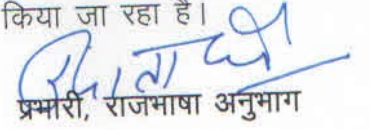 किया जा रहा है।
प्रभारी, राजभाषा अनुभाग